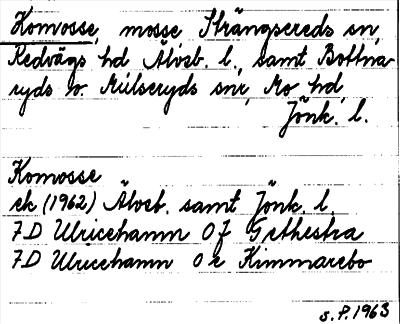 Komosse, mosse Strängsereds sn,
Redvägs hd Älvsb. l., samt Bottna-
ryds o. Mulseryds snr, Mo hd,
Jönk. l.
Komosse
ek (1962) Älvsb. samt Jönk. l.
7D Ulricehamn 0f Grthestra
7D Ulricehamn 0e Kimmarebo
s.P. 1963